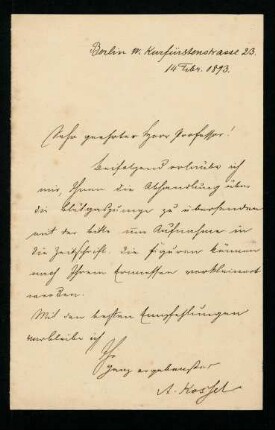 Berlin W. Kurfürstenstrasse 23.
14 Febr. 1893.
Sehr geehrter Herr Professor!
Beifolgend erlaube ich
mir Ihnen die Abhandlung über
die zu übersenden
mit der Bitte um Aufnahme in
die Zeitschrift. Die Figuren können
nach Ihrem Ermessen verkleinert
werden.
Mit den besten Empfehlungen
verbleibe ich
Ihr
ganz ergebenster
A. Kossel